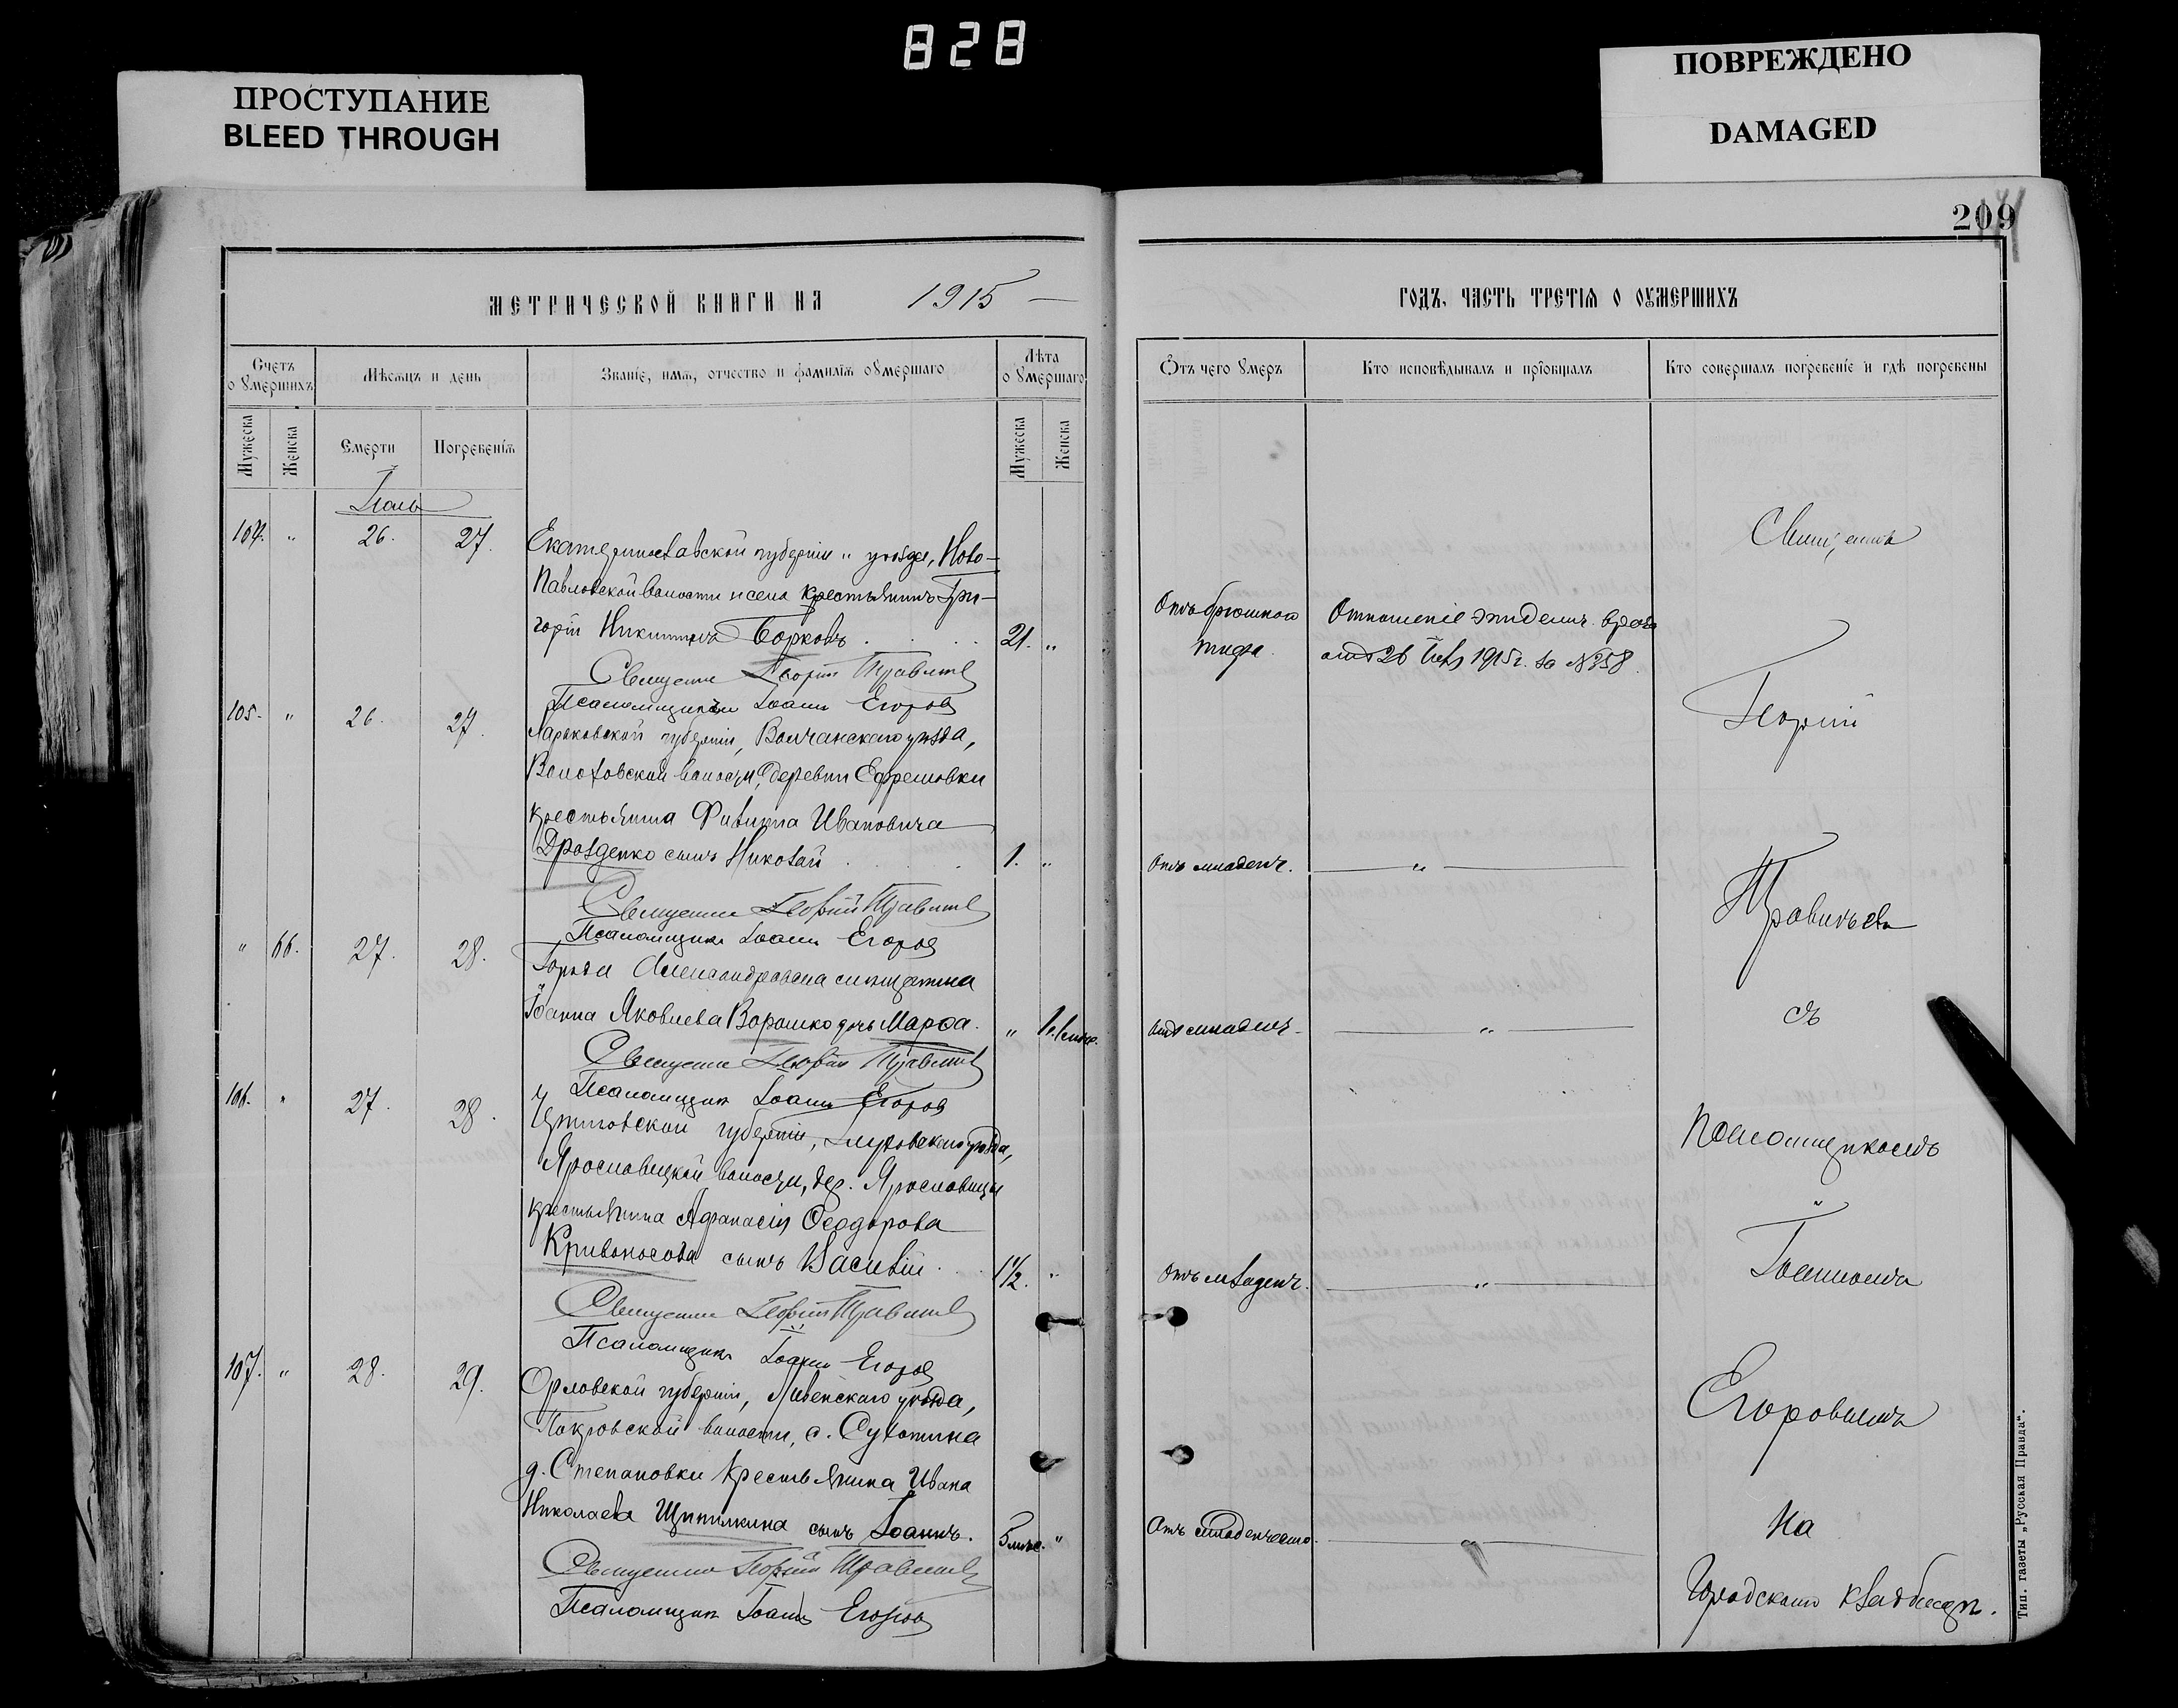 828
ПРОСТУПАНИЕ
BLEED THROUGH
ПОВРЕЖДЕНО
DAMAGED
209
МЕТРИЧЕСКОЙ КНИГИ НА 1915
ГОДЪ, ЧАСТЬ ТРЕТІЯ О ОУМЕРШИХЪ
Счетъ оумершихъ
Мѣсяцъ и день
Званіе, имя, отчество и фамилія оумершаго
Лѣта оумершаго
Отъ чего умеръ
Кто исповѣдывалъ и пріобщалъ
Кто совершалъ погребеніе и гдѣ погребены
Мужеска
Женска
Смерти
Погребенія
Мужеска
Женска
Іюль
104. " 26. 27.
Екатеринославской губерніи " уѣзда, Ново-
Павловской волости и села крестьянинъ Гри-
горій Никитичъ Борковъ 21. "
Отъ брюшного
тифа.
Отношеніе эпидемич. врача
отъ 26 1915 г. за № 358.
Священ Георгій
Псаломщикъ Іоаннъ Егоровъ
105. " 26. 27.
Харьковской губерніи, Волчанскаго уѣзда,
волости, деревни Ефремовки
крестьянина Филиппа Ивановича
Дрозденко сынъ Николай 1. "
Отъ младенч. "
Священ Георгій
Псаломщикъ Іоаннъ Егоровъ
" 66. 27. 28.
Александровска
Іоанна Яковлева Ворошко дочь Марфа. "
Отъ младенч. "
Священ Георгій
Псаломщикъ Іоаннъ Егоровъ
106. " 27. 28.
Черниговской губерніи, уѣзда,
Ярославецкой волости, дер. Ярославецъ
крестьянина Афанасія Ѳеодорова
Кривоносова сынъ Василій 1 1/2. "
Отъ младенч. "
Священ Георгій
Псаломщикъ Іоаннъ Егоровъ
107. " 28. 29.
Орловской губерніи, Ливенскаго уѣзда,
Покровской волости, с.
д. Степановки крестьянина Ивана
Николаева Щипилкина сынъ Іоаннъ. 5 мѣс. "
Отъ младенческо. "
Священ Георгій
Псаломщикъ Іоаннъ Егоровъ
Священ
Георгій
съ
Псаломщикомъ
Іоанномъ
Егоровымъ
На
Городскомъ кладбищѣ.
Тип. газеты „Русская Правда".